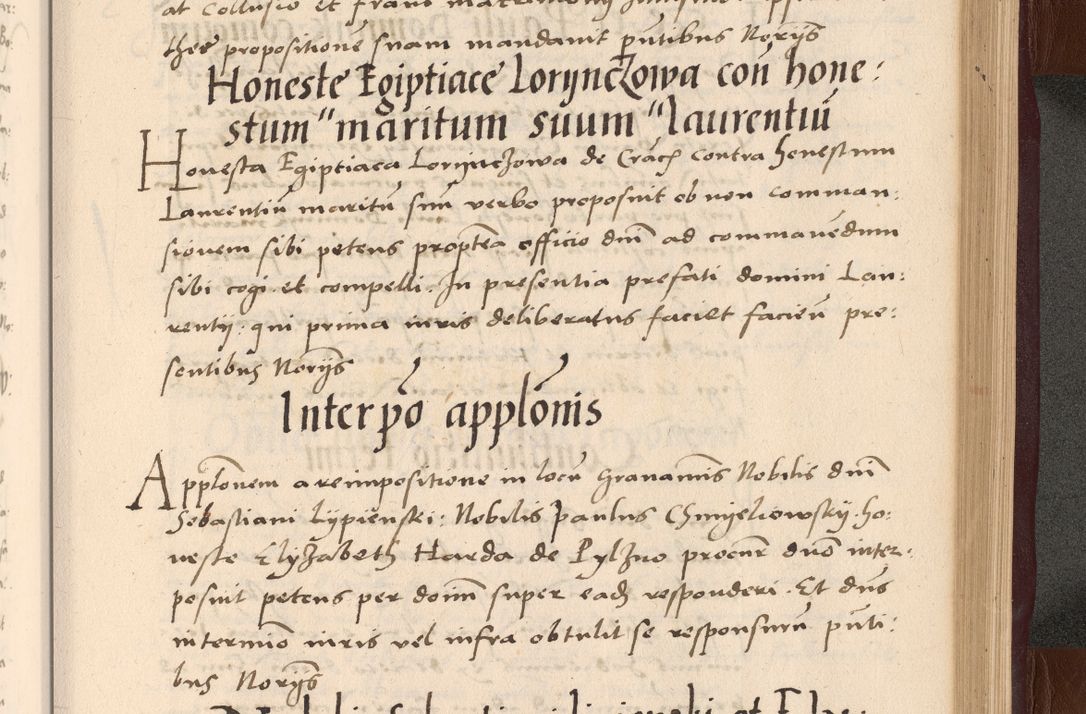 at Collusio et fraus
thee propositione suam mandavit pñtibus Norijs
Honeste Egiptiace Lorynczowa coñ hone:
stum maritum suum laurentiũ
Honesta Egiptiaca Lorynczowa de Crac̃ contra honestum
Laurentiũ maritũ suũ verbo proposuit ob non comman:
sionem sibi petens proptea officio dñi ad commanẽdum
sibi cogi et compelli. In presentia prefati domini Lau:
rentij. qui prima iuris deliberatus faciet facieñ pre:
sentibus Norijs
Interpõ applõnis
Applõnem a reimpositione in locũ Gravamĩnis Nobilis dñi
Sebastiani Lypienski: Nobilis Paulus Chmyeliowsky. ho:
neste Elyzabeth Harda de Pylzno procur̃ duõ inter:
posuit petens per domñ super eadẽ responderi. Et dũs
in termiõ iuris vel infra obtulit se responsurũ pñti:
bus Norijs